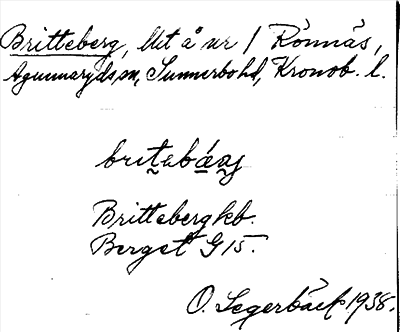 Britteberg, lht å nr 1 Rönnäs,
Agunnaryds sn, Sunnerbo hd, Kronob. l.
britabáraj
Brittebergkb.
Berget G15.
O. Segerbäck 1938.